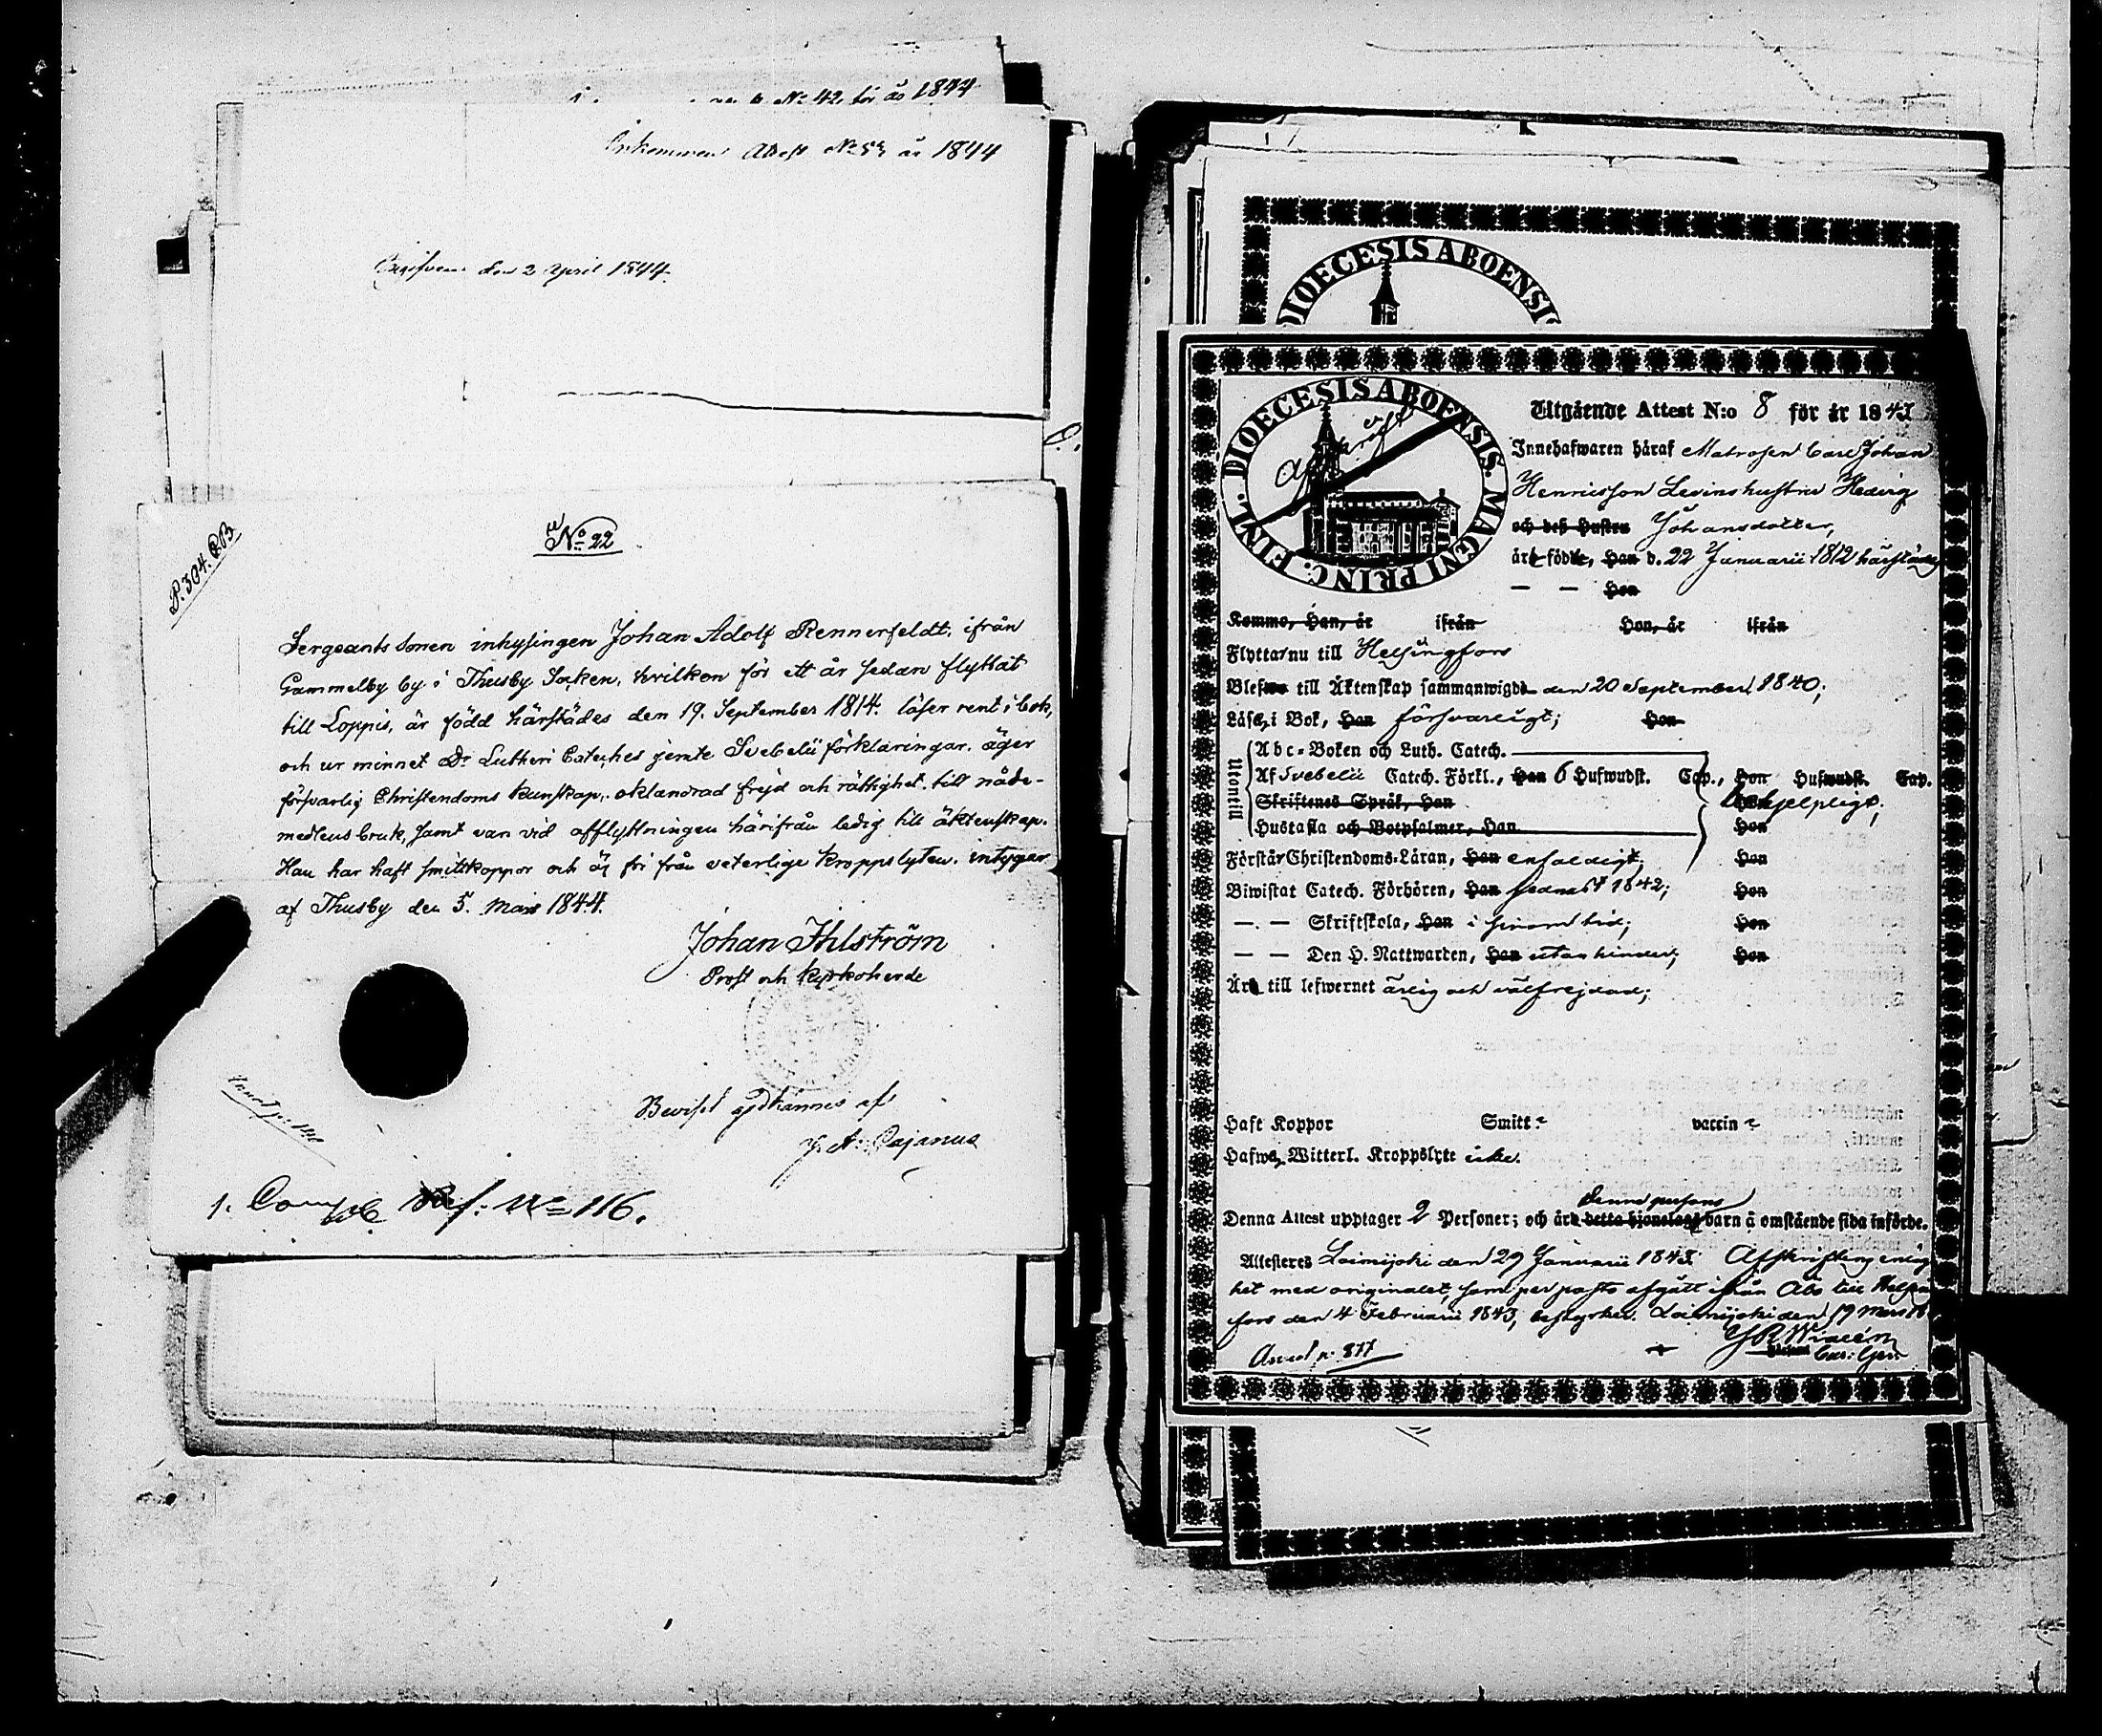 No 42 för år 1844
Inkommen Attest No 53 år 1844
den 2 April 1844.
P. 304. CB
No 22
Sergeants sonen inhysingen Johan Adolf Rennerfeldt, ifrån
Gammelby by i Thusby Socken, hvilken för ett år sedan flyttat
till Loppis, är född härstädes den 19. September 1814. läser rent i bok,
och ur minnet Dr Lutheri Cateches jemte Svebelii förklaringar. äger
försvarlig Christendoms kunskap, oklandrad frejd och rättighet till nåde-
medlens bruk, samt var vid afflyttningen härifrån ledig till äktenskap.
Han har haft smittkoppor och är fri från veterlige kroppslyten. intygar
af Thusby den 5. Mars 1844.
Johan Ihlström
Prost och Kyrkoherde
Beviset godkännes af
J. A. Cajanus
No 116.
DIOECESIS ABOENSIS
DIOECESIS ABOENSIS. MAGNI PRINC. FINL.
Afskrift
Utgående Attest N:o 8 för år 1843
Innehafwaren häraf Matrosen Carl Johan
Henricsson Levins hustru Hedvig
och deß Hustru Johansdotter,
äre födde, Han d. 22 Januarii 1812 härstädes
— — Hon
Kommo, Han, år ifrån Hon, år ifrån
Flytta nu till Helsingfors
Blefwo till Äktenskap sammanwigde den 20 September 1840;
Läsa i Bok, Han försvarligt; Hon
Utantill
Abc-Boken och Luth. Catech.
Af Svebelii Catech. Förkl., Han 6 Hufwudst. Cap., Hon Hufwudst. Cap.
Skriftenes Språk, Han behjelpligt;
Hustafla och Botpsalmer, Han Hon
Förstår Christendoms-Läran, Han enfaldigt; Hon
Biwistat Catech. Förhören, Han sednast 1842; Hon
— — Skriftskola, Han i sinom tid; Hon
— — Den H. Nattwarden, Han utan hinder; Hon
Äro till lefwernet ärlig och välfrejdad;
Haft Koppor Smitt- vaccin-
Hafwa Witterl. Kroppslyte icke.
denne persons
Denna Attest upptager 2 Personer; och äro detta hjonelags barn å omstående sida införde.
Attesteres Loimijoki den 29 Januarii 1843. Afskriftens enlig
het med originalet, som per posto afgått ifrån Åbo till Helsing
fors den 4 Februarii 1843, bestyrker. Loimijoki den 19 Mars 18